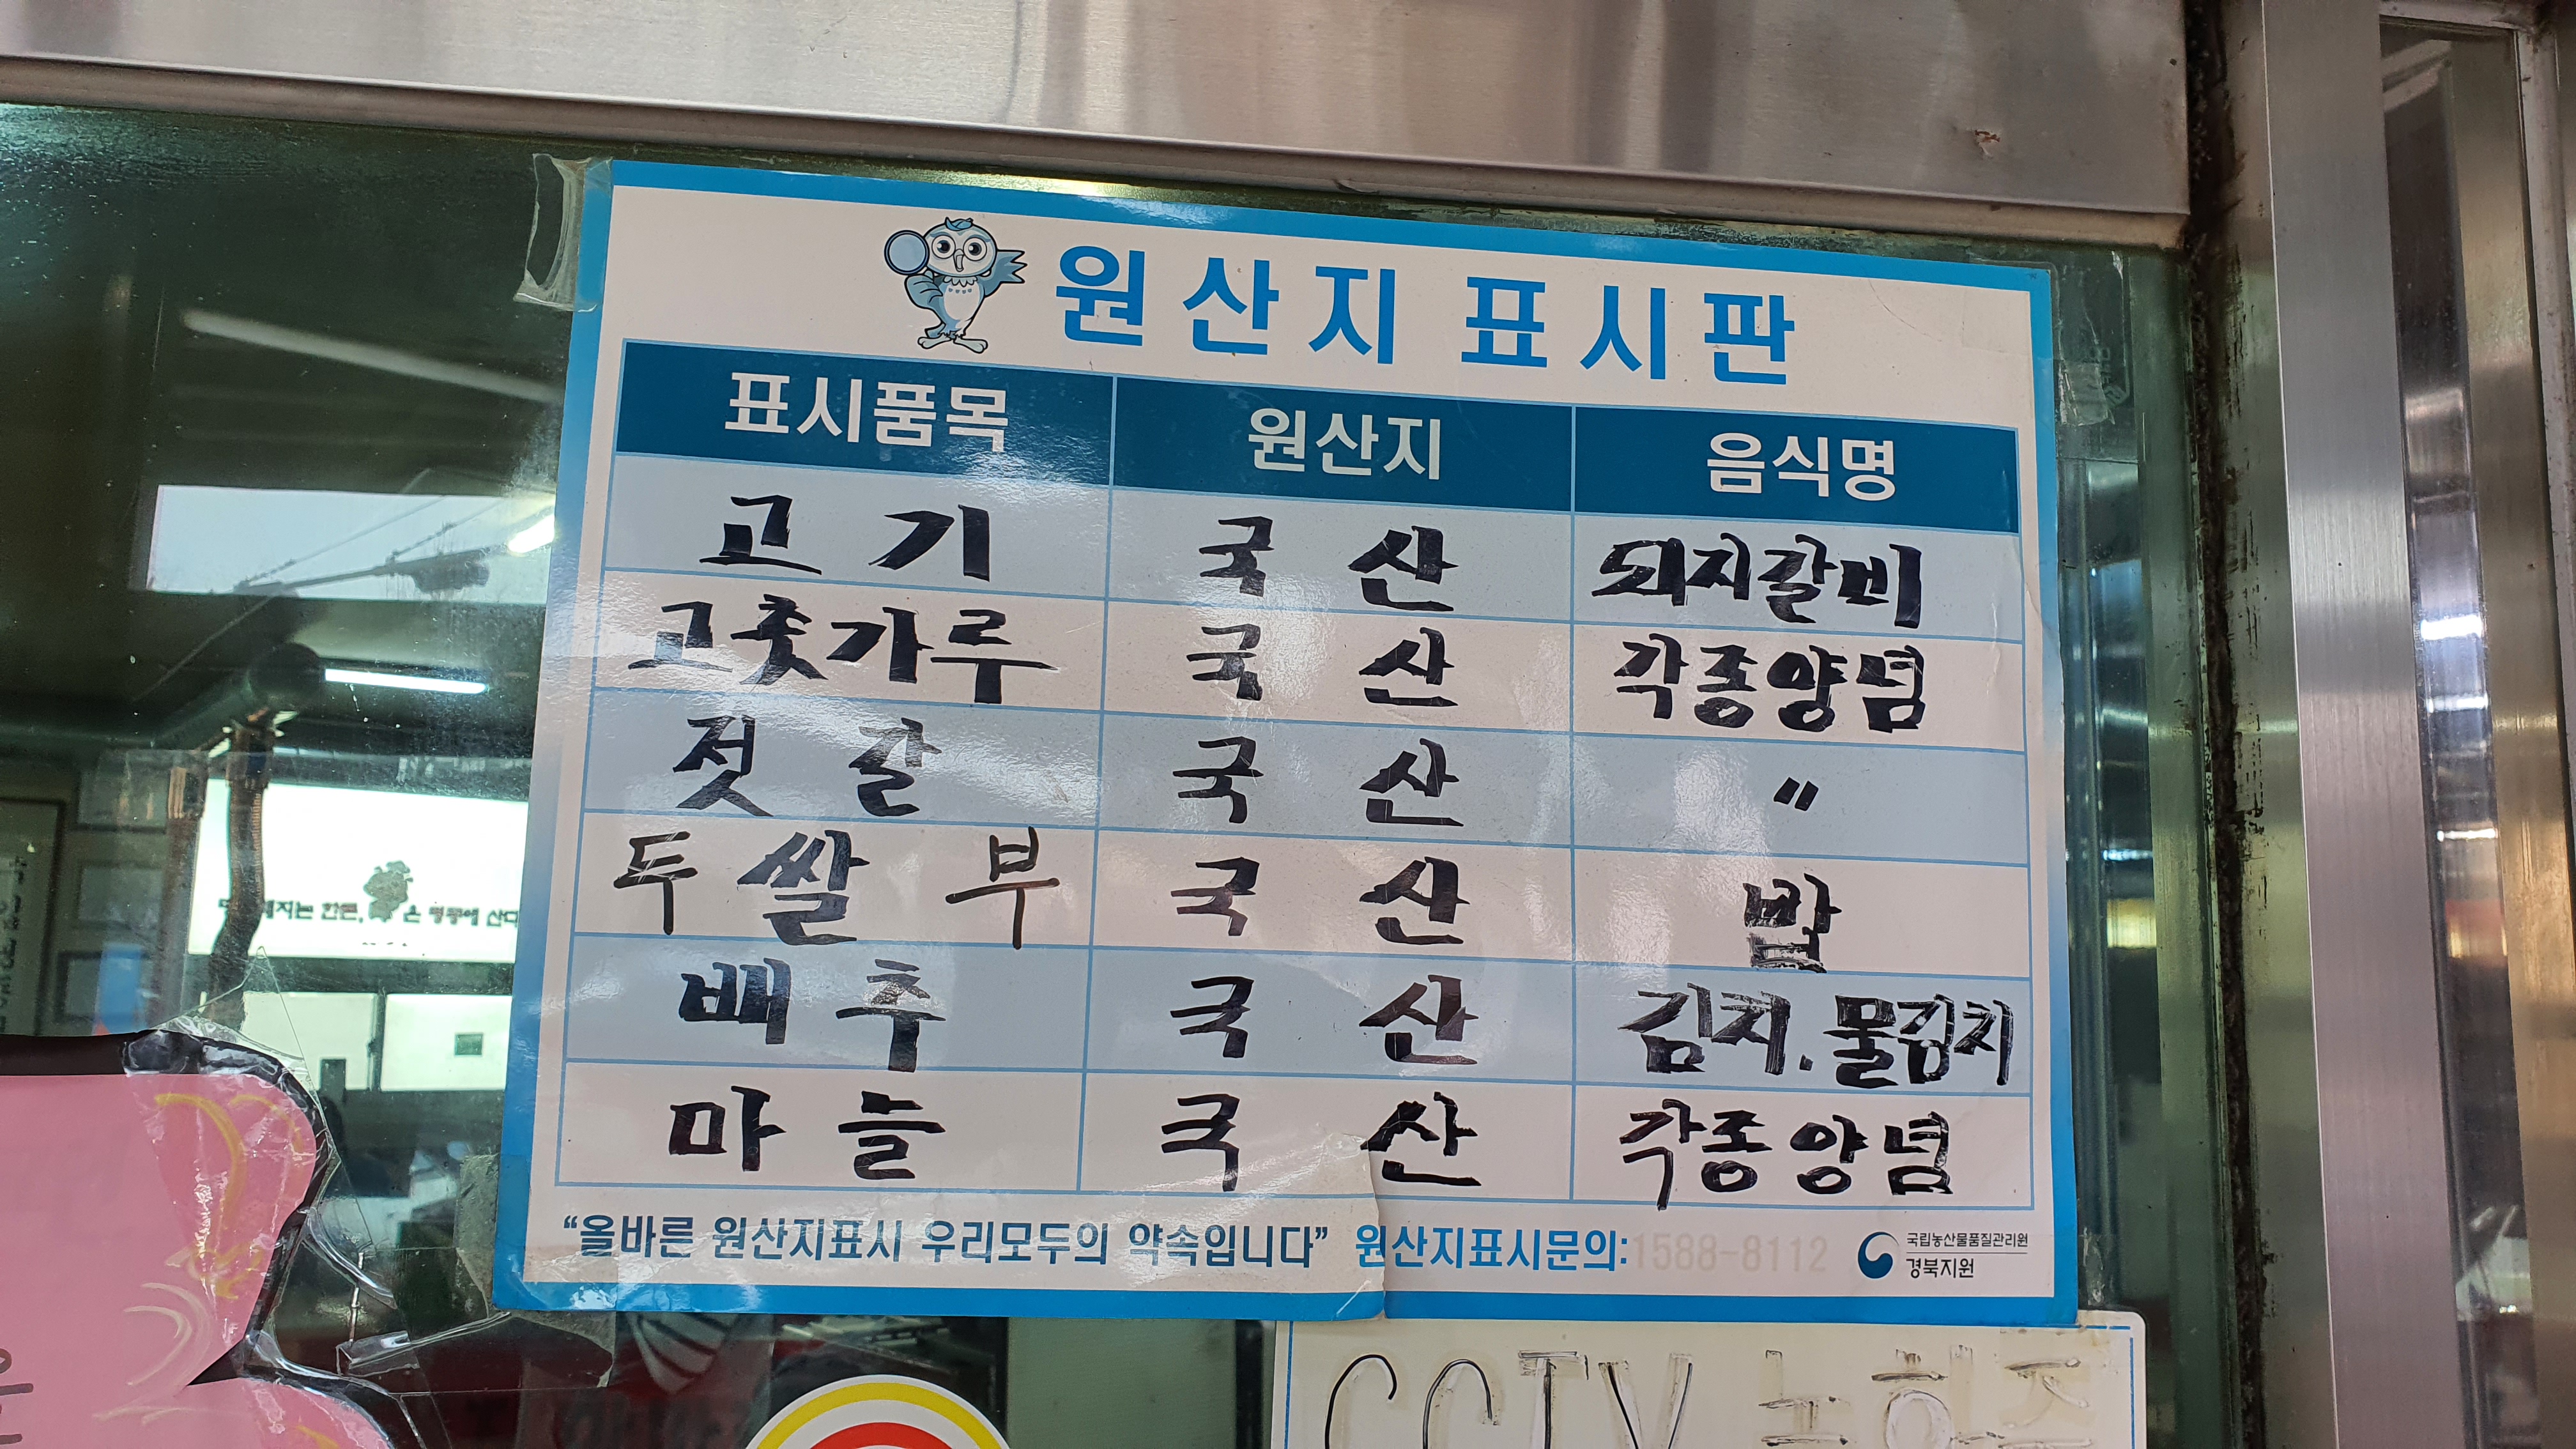 원산지 표시판
표시품목 원산지 음식명
고기 국산 돼지갈비
고춧가루 국산 각종양념
젓갈 국산 〃
두 쌀 부 국산 밥
배추 국산 김치.물김치
마늘 국산 각종양념
“올바른 원산지표시 우리모두의 약속입니다” 원산지표시문의:1588-8112
국립농산물품질관리원
경북지원
CCTV 녹화중